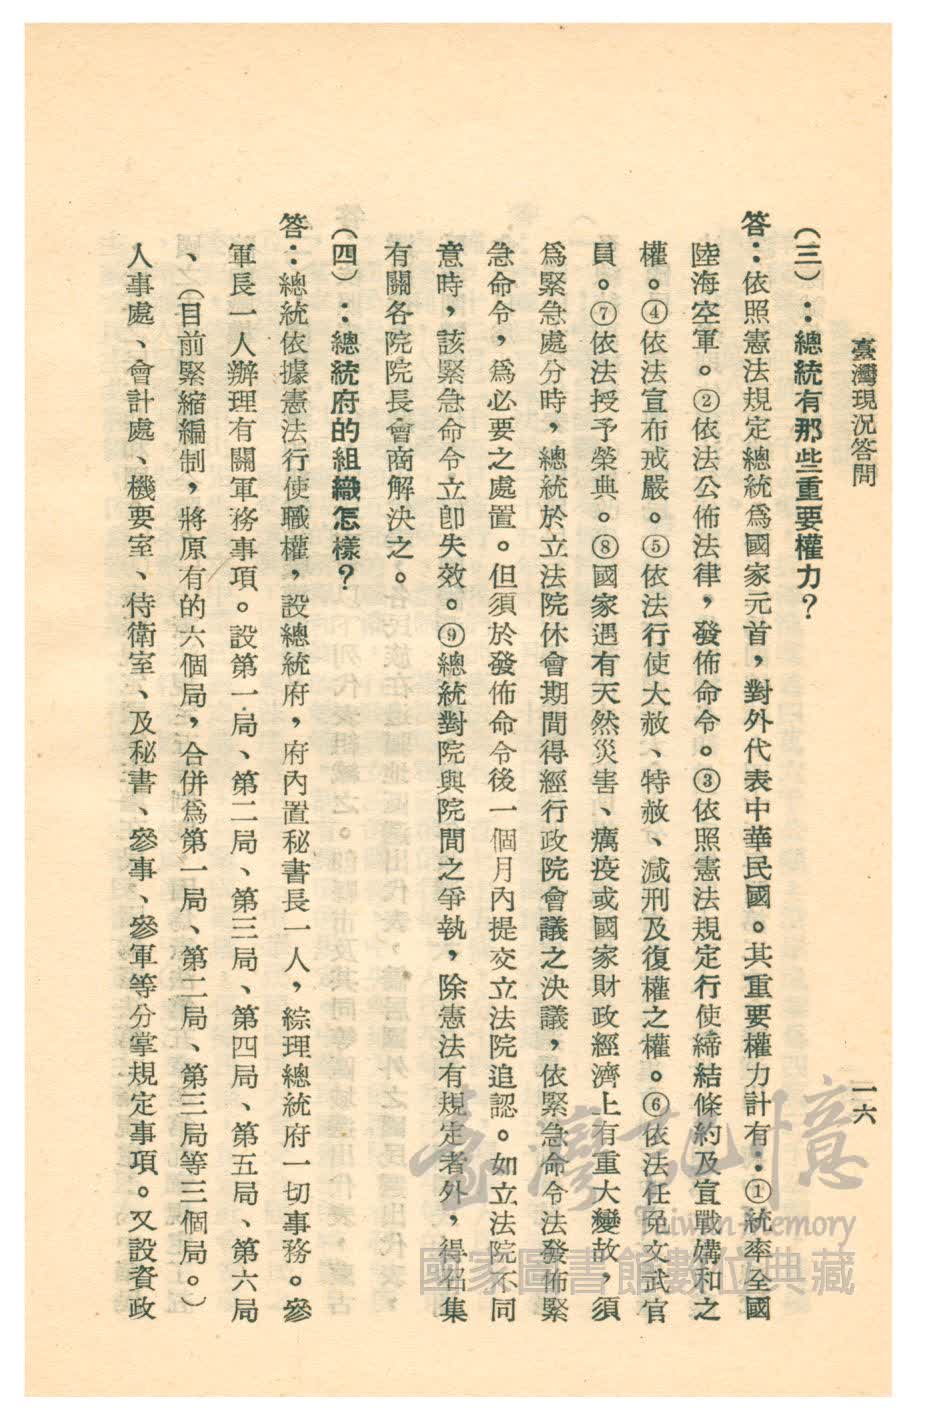 臺灣現況答問
一六
(三)：總統有那些重要權力？
答：依照憲法規定總統爲國家元首，對外代表中華民國。其重要權力計有：①統率全國
陸海空軍。②依法公佈法律，發佈命令。③依照憲法規定行使締結條約及宣戰媾和之
權。④依法宣布戒嚴。⑤依法行使大赦、特赦、減刑及復權之權。⑥依法任免文武官
員。⑦依法授予榮典。⑧國家遇有天然災害、癘疫或國家財政經濟上有重大變故，須
爲緊急處分時，總統於立法院休會期間得經行政院會議之決議，依緊急命令法發佈緊
急命令，爲必要之處置。但須於發佈命令後一個月內提交立法院追認。如立法院不同
意時，該緊急命令立卽失效。⑨總統對院與院間之爭執，除憲法有規定者外，得召集
有關各院院長會商解決之。
(四)：總統府的組織怎樣？
答：總統依據憲法行使職權，設總統府，府內置秘書長一人，綜理總統府一切事務。參
軍長一人辦理有關軍務事項。設第一局、第二局、第三局、第四局、第五局、第六局
、(目前緊縮編制，將原有的六個局，合併爲第一局、第二局、第三局等三個局。)
人事處、會計處、機要室、侍衛室、及秘書、參事、參軍等分掌規定事項。又設資政
臺灣記憶
Taiwan Memory
國家圖書館數位典藏